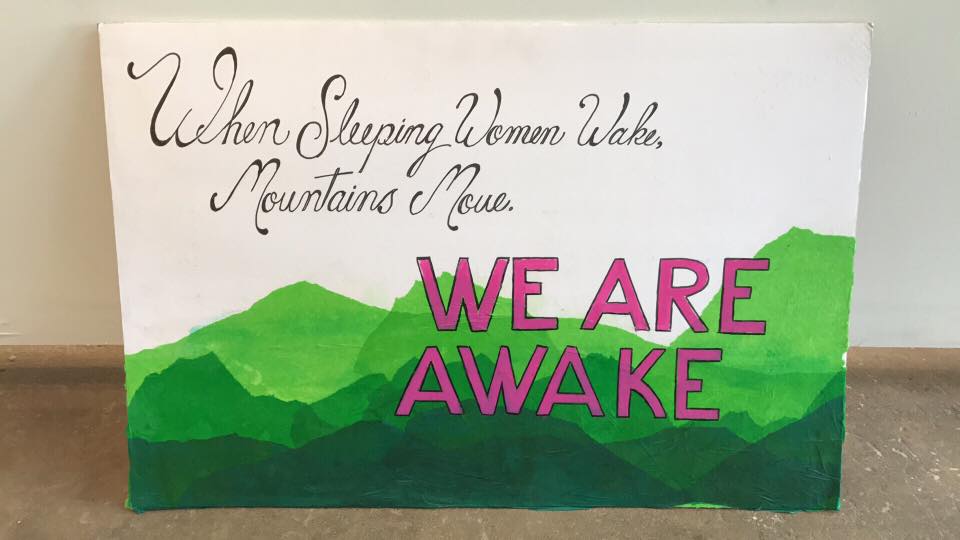 When Sleeping Women Wake,
Mountains Move.
WE ARE
AWAKE